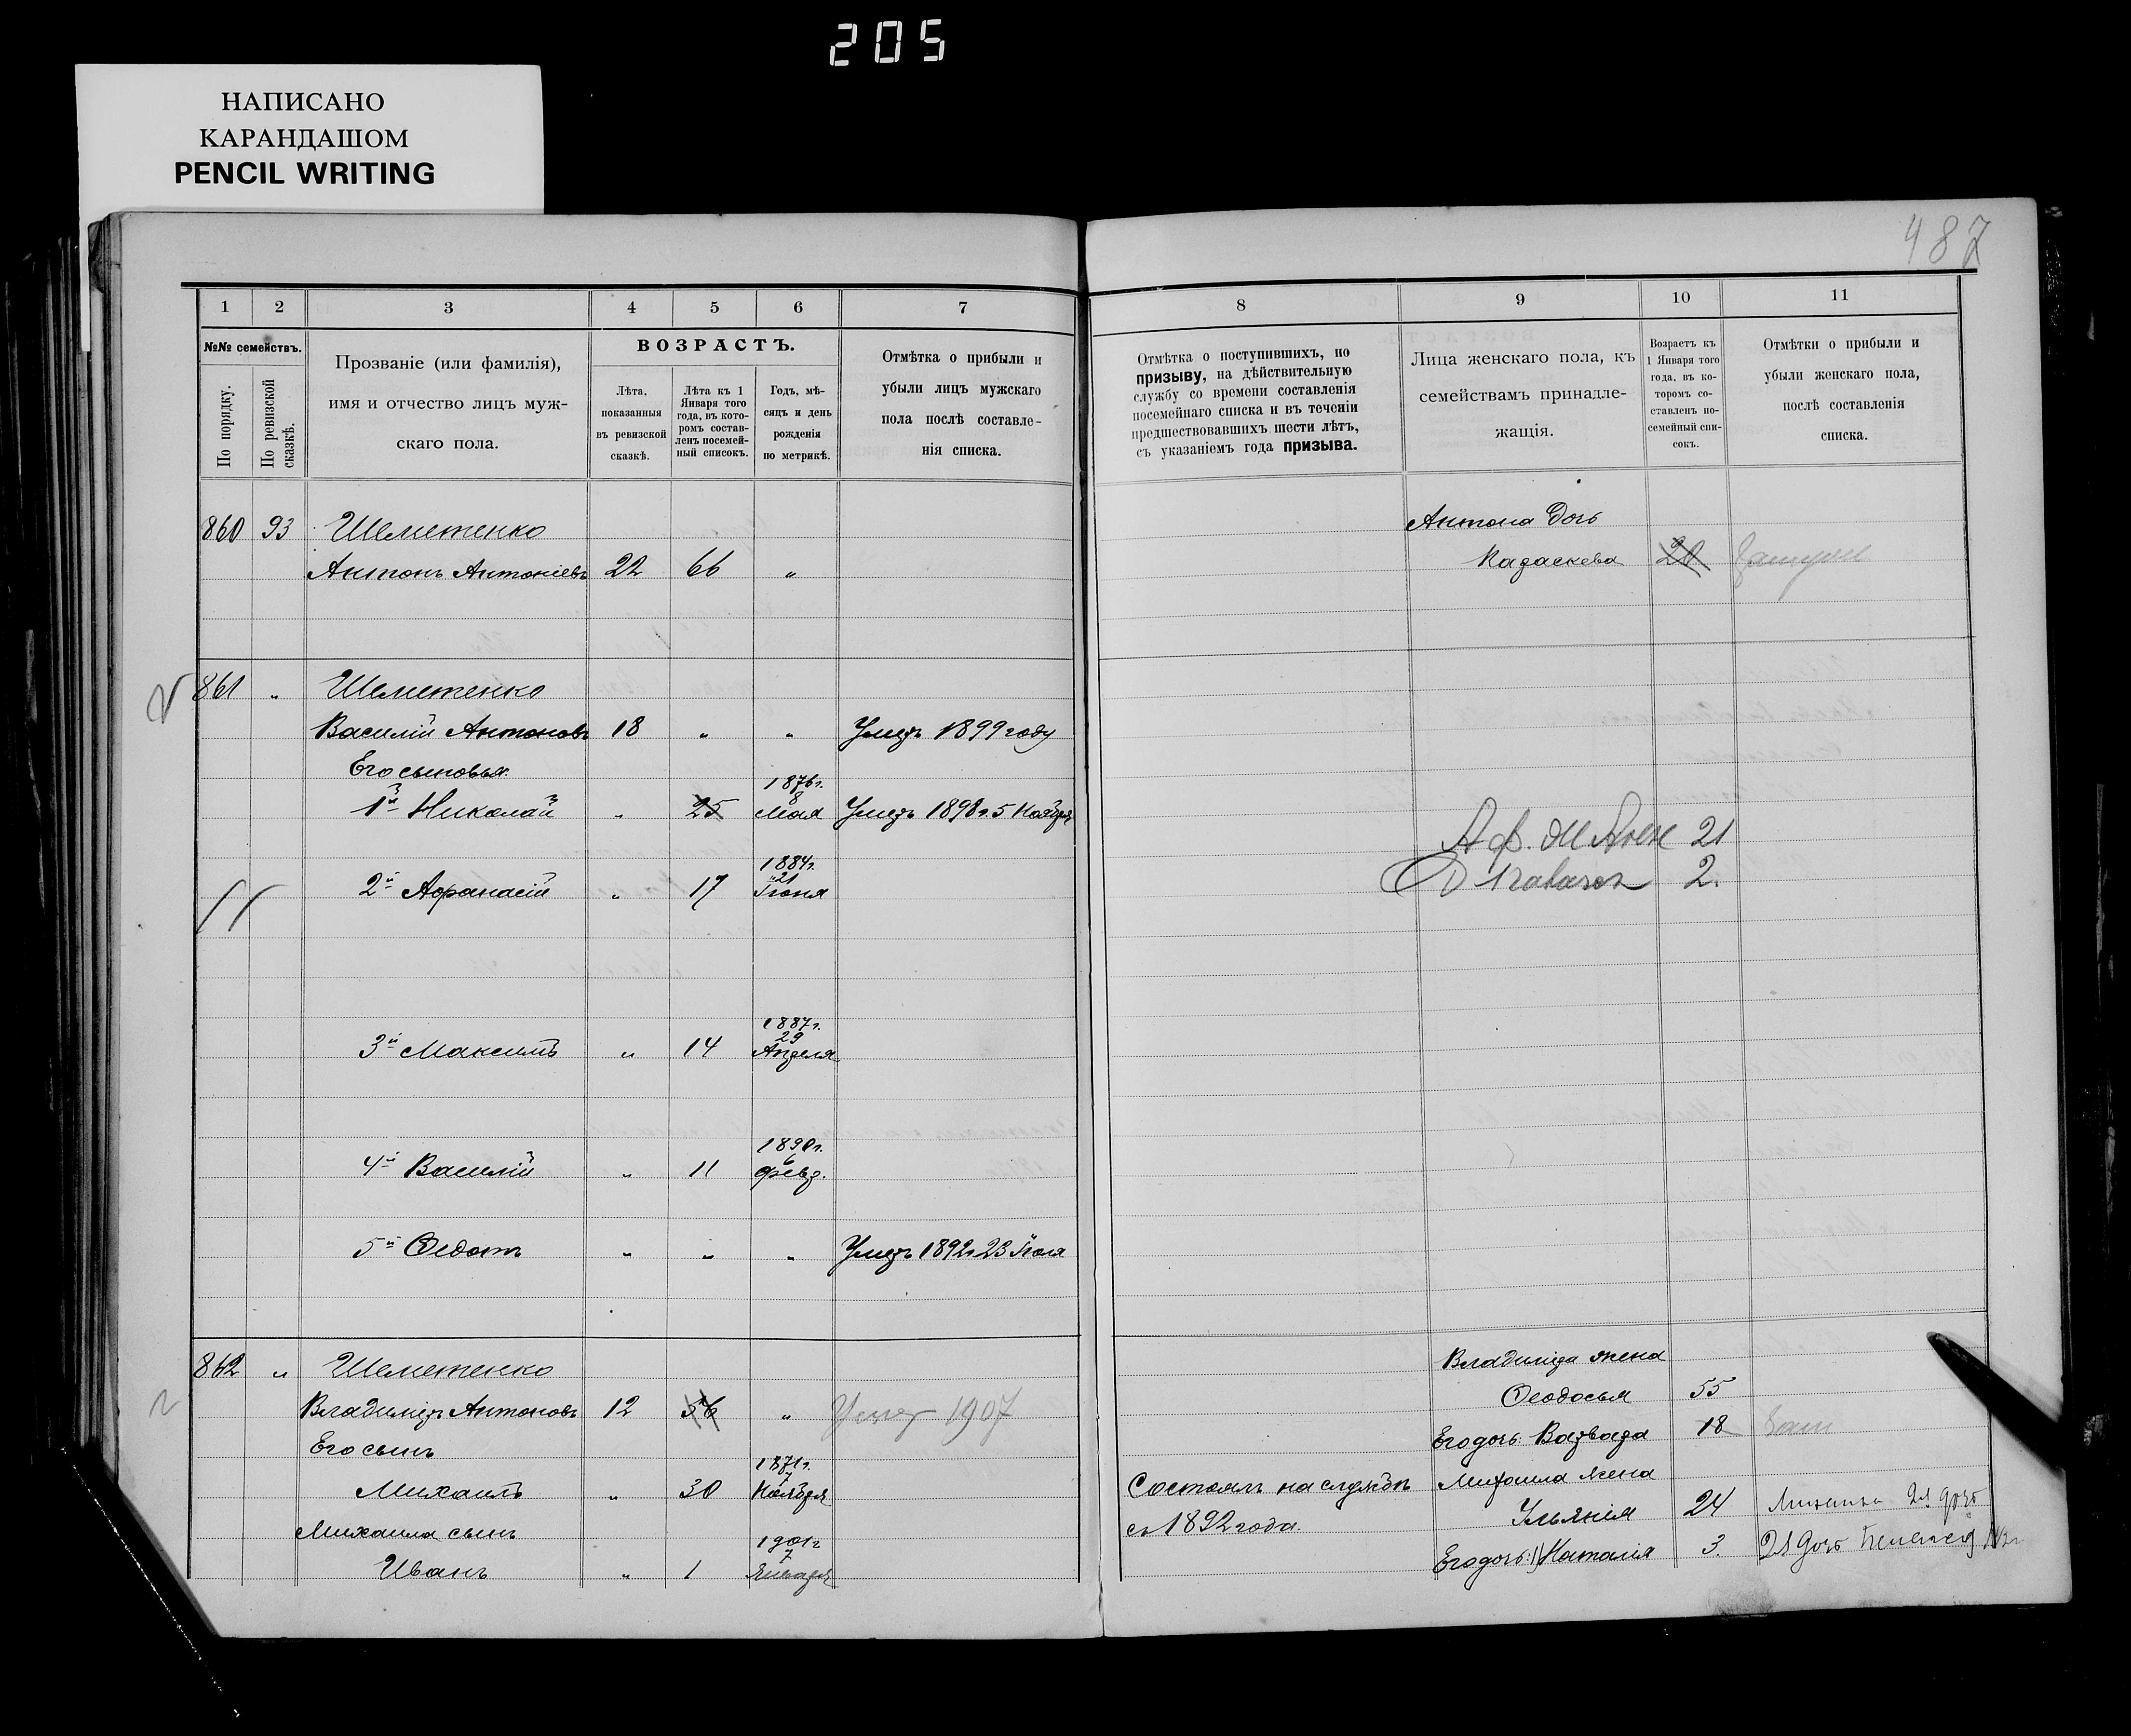 205
НАПИСАНО
КАРАНДАШОМ
PENCIL WRITING
487
1 2 3 4 5 6 7 8 9 10 11
№№ семействъ.
По порядку.
По ревизской сказкѣ.
Прозваніе (или фамилія),
имя и отчество лицъ муж-
скаго пола.
ВОЗРАСТЪ.
Лѣта,
показанныя
въ ревизской
сказкѣ.
Лѣта къ 1
Января того
года, въ кото-
ромъ состав-
ленъ посемей-
ный списокъ.
Годъ, мѣ-
сяцъ и день
рожденія
по метрикѣ.
Отмѣтка о прибыли и
убыли лицъ мужскаго
пола послѣ составле-
нія списка.
Отмѣтка о поступившихъ, по
призыву, на дѣйствительную
службу со времени составленія
посемейнаго списка и въ теченіи
предшествовавшихъ шести лѣтъ,
съ указаніемъ года призыва.
Лица женскаго пола, къ
семействамъ принадле-
жащія.
Возрастъ къ
1 Января того
года, въ ко-
торомъ со-
ставленъ по-
семейный спи-
сокъ.
Отмѣтки о прибыли и
убыли женскаго пола,
послѣ составленія
списка.
860 93 Шеметенко
Антона дочь
Антонъ Антоніевъ 22 66 "
20
861 " Шеметенко
Василій Антоновъ 18 " " Умеръ 1899 году
Его сыновья:
1й Николай " 25 1876г. 8 Мая Умеръ 1898г. 5 Ноября
21
2й Афанасій " 17 1884г. 21 Іюня
2.
3й Максимъ " 14 1887г. 29 Апреля
4й Василій " 11 1890г. 6 февр.
5й Федотъ " " " Умеръ 1892г 23 Іюля
862 " Шеметенко
Владиміра жена
Феодосья 55
Владиміръ Антоновъ 12 56 " Умер 1907
Его дочь: Варвара 18
Его сынъ
Михаилъ " 30 1871г. 7 Ноября
Состоялъ на службѣ
съ 1892 года.
Михаила жена
Ульянія 24
Михаила сынъ
Иванъ " 1 1901г 7 Января
Его дочь: 1) Наталія 3.